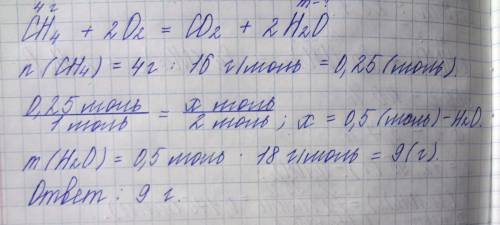 4 г m-?
CH₄ + 2O₂ = CO₂ + 2H₂O
n (CH₄) = 4 г : 16 г/моль = 0,25 (моль).
0,25 моль / 1 моль = x моль / 2 моль ; x = 0,5 (моль) - H₂O.
m (H₂O) = 0,5 моль · 18 г/моль = 9 (г).
Ответ : 9 г.